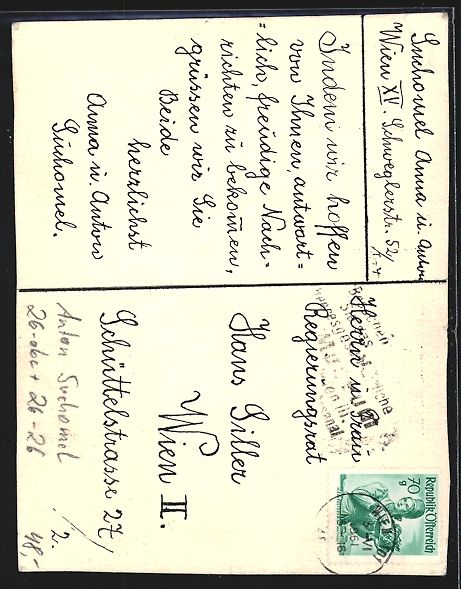 Suchomel Anna u. Anton
Wien XV. Schweglerstr. 52/
Indem wir hoffen
von Ihnen, antwort=
=lich, freudige Nach-
richten zu bekom̄en,
grüssen wir Sie
Beide
herzlichst
Anna u. Anton
Suchomel.
Herrn u. Frau
Regierungsrat
Hans Siller
Wien II.
Schüttelstrasse 27/
/2.
Anton Suchomel
26-26
48,-
70
g
Republik Österreich
WIEN